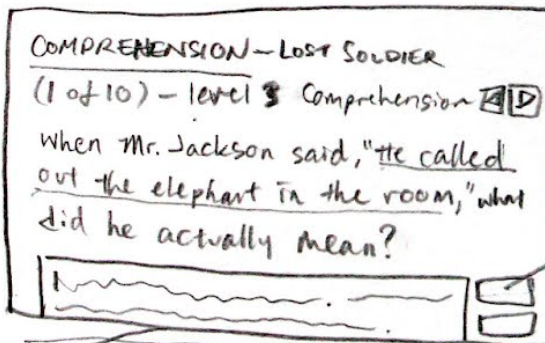 COMPREHENSION - LOST SOLDIER
(1 of 10) - level 3 Comprehension
When Mr. Jackson said, "He called
out the elephant in the room," what
did he actually mean?